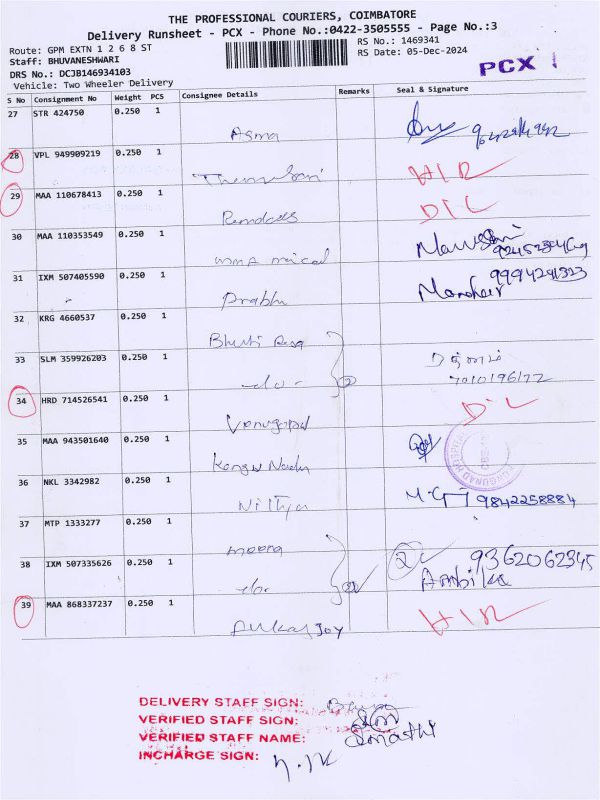 THE PROFESSIONAL COURIERS, COIMBATORE
Delivery Runsheet - PCX - Phone No.:0422-3505555 - Page No.:3
Route: GPM EXTN 1 2 6 8 ST
RS No.: 1469341
Staff: BHUVANESHWARI
RS Date: 05-Dec-2024
DRS No.: DCJB146934103
PCX 1
Vehicle: Two Wheeler Delivery
S No Consignment No Weight PCS Consignee Details Remarks Seal & Signature
27 STR 424750 0.250 1 Asma
28 VPL 949909219 0.250 1 HIR
29 MAA 110678413 0.250 1 D/L
30 MAA 110353549 0.250 1
31 IXM 507405590 0.250 1 Prabhu Manohar 9994241323
32 KRG 4660537 0.250 1
33 SLM 359926203 0.250 1 -do- 2 ரத்னம் 7010196172
34 HRD 714526541 0.250 1 Venugopal D/L
35 MAA 943501640 0.250 1 Kongu Nadu
36 NKL 3342982 0.250 1 Nithya 9842258884
37 MTP 1333277 0.250 1 meena
38 IXM 507335626 0.250 1 -do- 2 2 9362062345 Ambika
39 MAA 868337237 0.250 1 Joy HIR
DELIVERY STAFF SIGN: Bhuva
VERIFIED STAFF SIGN:
VERIFIED STAFF NAME: Sumathi
INCHARGE SIGN: